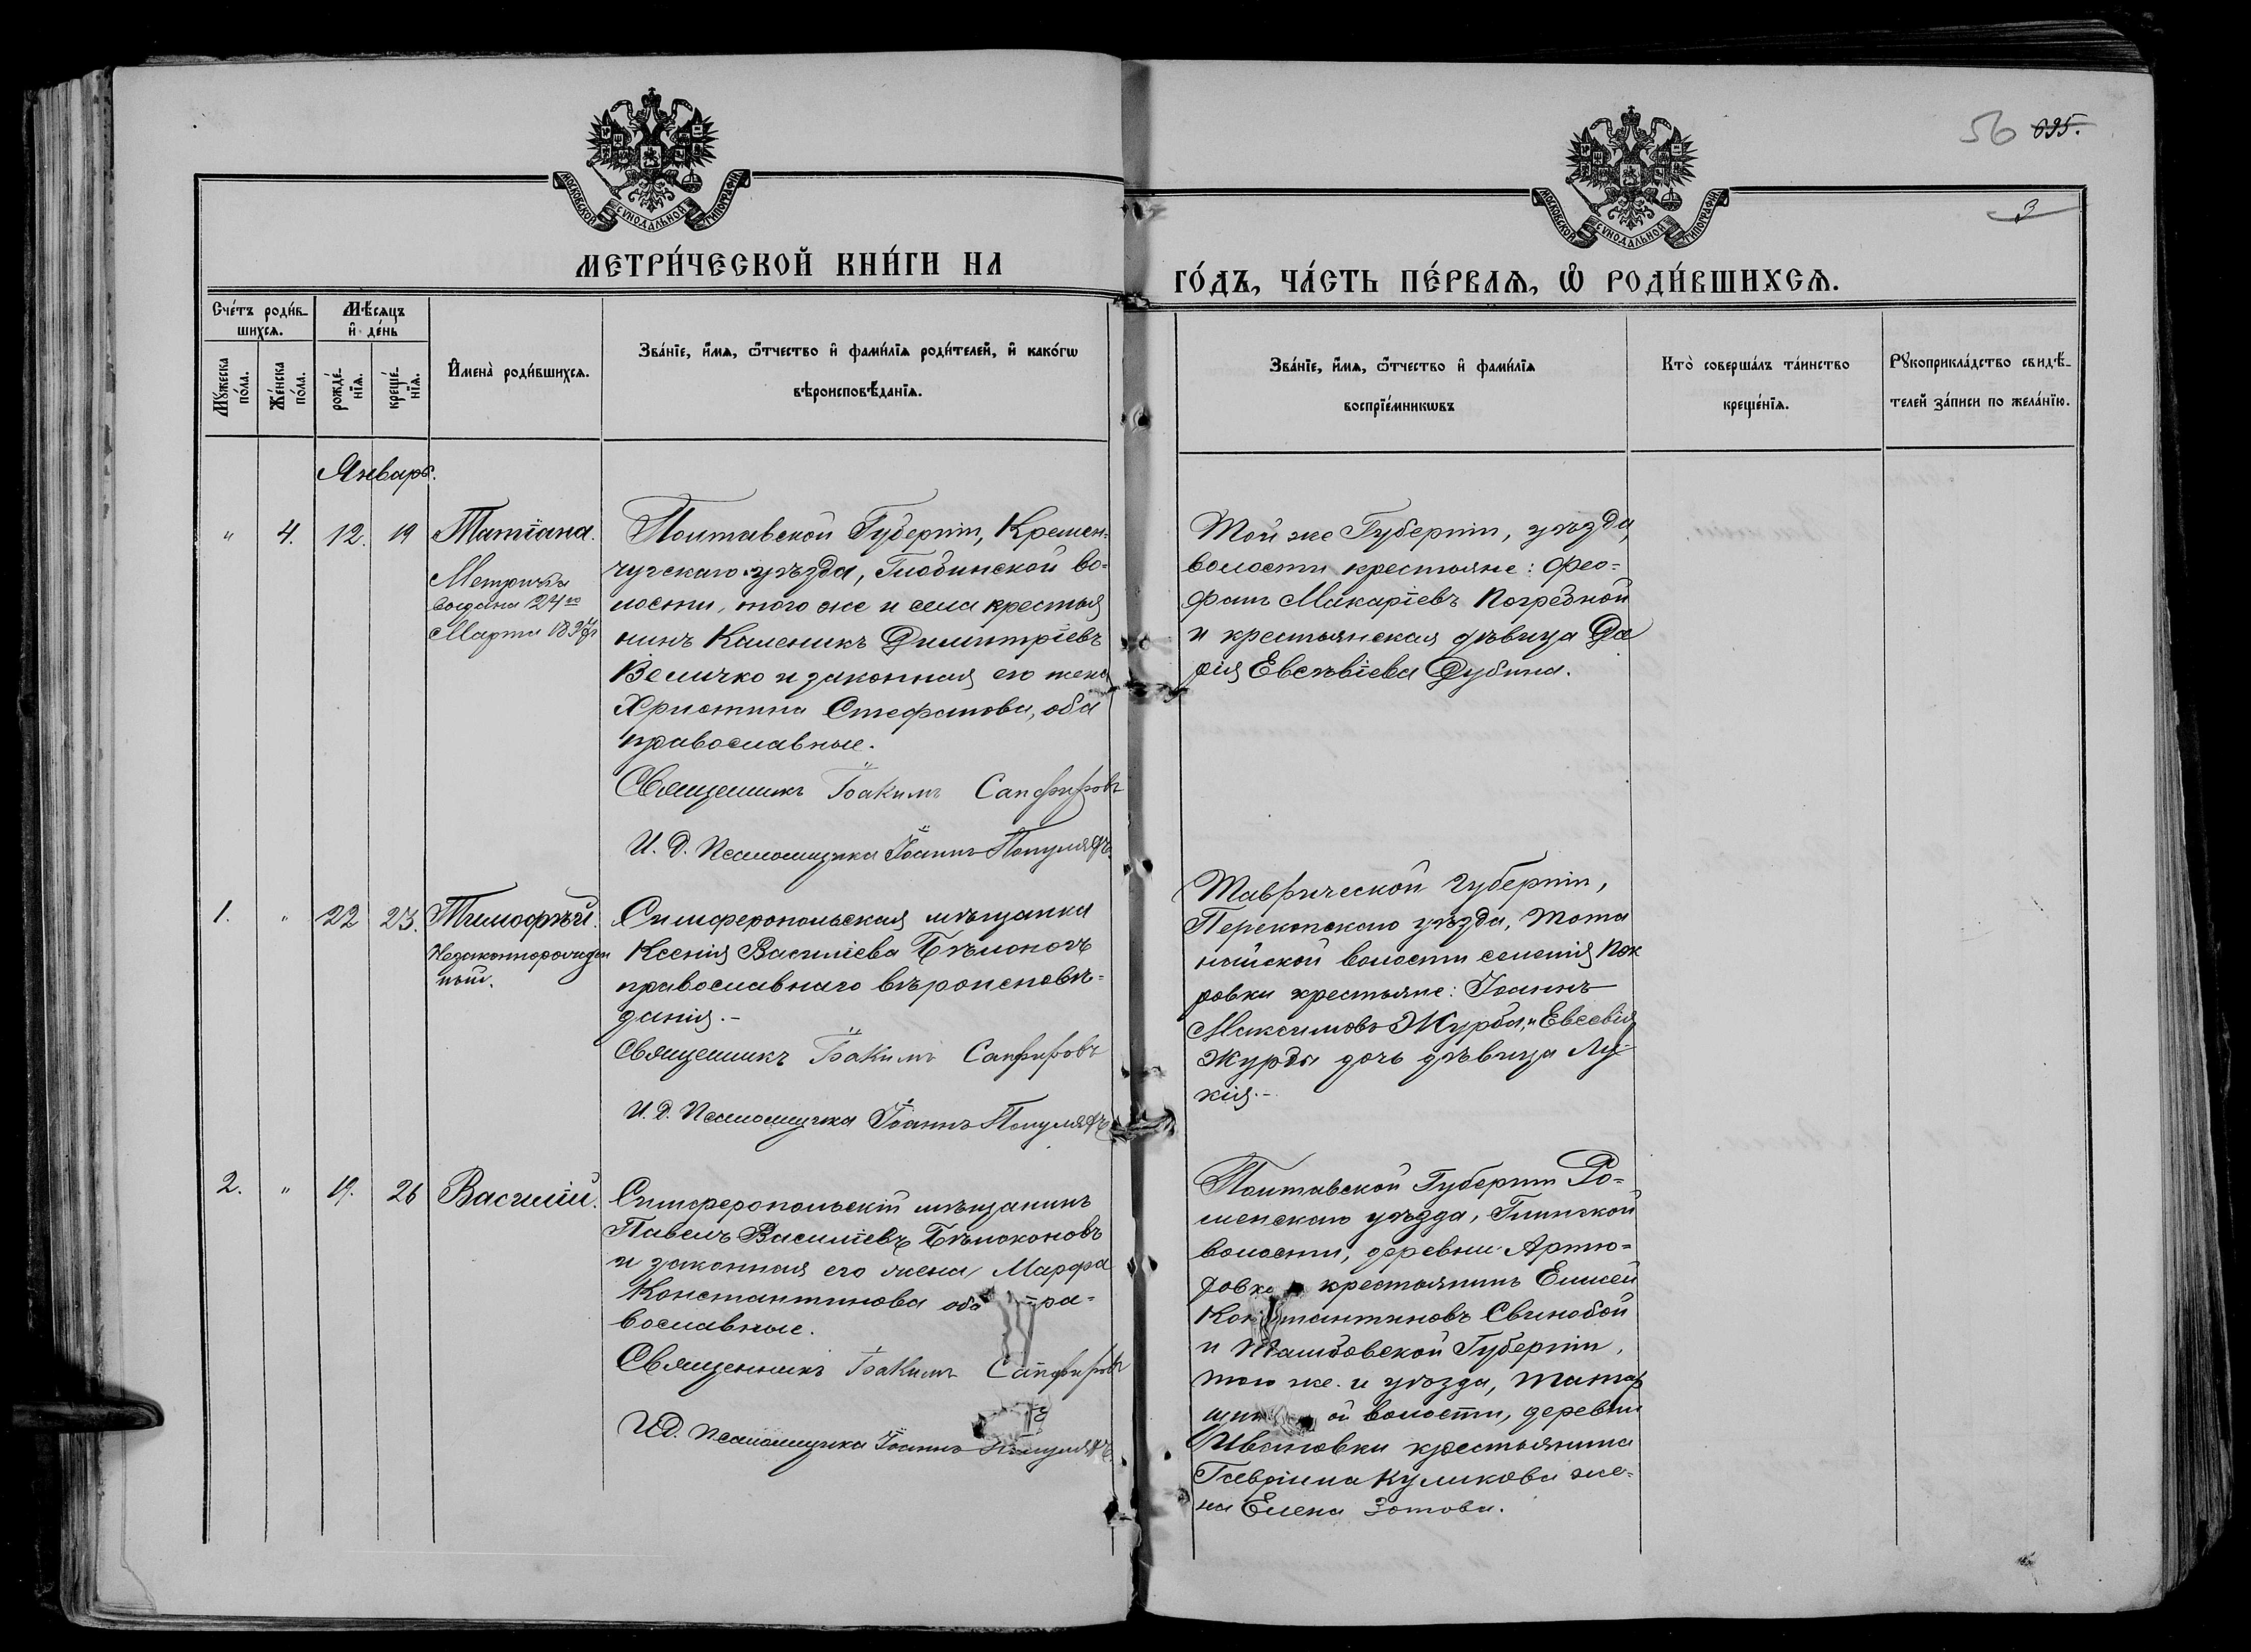 56 695.
3
МОСКОВСКОЙ СѴНОДАЛЬНОЙ ТИПОГРАФІИ
МОСКОВСКОЙ СѴНОДАЛЬНОЙ ТИПОГРАФІИ
МЕТРИ́ЧЕСКОЙ КНИ́ГИ НА
ГО́ДЪ, ЧА́СТЬ ПЕ́РВАѦ, Ѡ҆ РОДИ́ВШИХСѦ.
Сче́тъ роди́в-
шихсѧ.
Мѣ́сѧцъ
и҆ де́нь
Мꙋ́жеска
по́ла.
Же́нска
по́ла.
рожде́-
нїѧ.
креще́-
нїѧ.
И҆мена̀ роди́вшихсѧ.
Зва́нїе, и҆́мѧ, ѻ҆́тчество и҆ фами́лїѧ роди́телей, и҆ како́гѡ
вѣроисповѣ́данїѧ.
Зва́нїе, и҆́мѧ, ѻ҆́тчество и҆ фами́лїѧ
воспрїе́мникѡвъ
Кто̀ соверша́лъ та́инство
креще́нїѧ.
Рꙋкоприкла́дство свидѣ́-
телей за́писи по жела́нїю.
Январь.
" 4. 12. 19 Татіана.
Метричка
выдана 24го
Марта 189
Полтавской Губерніи, Кремен-
чугскаго уѣзда, Глобинской во-
лости, того же и села крестья
нинъ Каленикъ Димитріевъ
Величко и законная его жена
Христина Стефанова, оба
православные.
Священникъ Іоакимъ Сапфировъ
И. Д. Псаломщика Іоаннъ Популяхъ.
Той же Губерніи, уѣзда,
волости крестьяне: Фео-
фанъ Макаріевъ Погребной
и крестьянская дѣвица Да
рія Евсѣвіева Дубина.
1. " 22 23. Тимофѣй.
Незаконнорожден
ный.
Симферопольская мѣщанка
Ксенія Василіева Бѣлоконь
православнаго вѣроисповѣ-
данія.-
Священникъ Іоакимъ Сапфировъ
И. Д. Псаломщика Іоаннъ Популяхъ
Таврической губерніи,
Перекопскаго уѣзда, Тота
найской волости селенія Пок
ровки крестьяне: Іоаннъ
Максимовъ Журба, и Евсевія
Журбы дочь дѣвица Лу-
кія.-
2. " 19. 26 Василій.
Симферопольскій мѣщанинъ
Павелъ Василіевъ Бѣлоконовъ
и законная его жена Марфа
Константинова оба пра-
вославные.
Священникъ Іоакимъ Сапфировъ
И.Д. Псаломщика Іоаннъ Популяхъ.
Полтавской Губерніи Ро-
менскаго уѣзда, Глинской
волости, деревни Артю-
ховки крестьянинъ Елисей
Константиновъ Свинобой
и Тамбовской Губерніи,
того же и уѣзда,
ой волости, деревни
Ивановки крестьянина
Гавріила Куликова же-
на Елена Зотова.